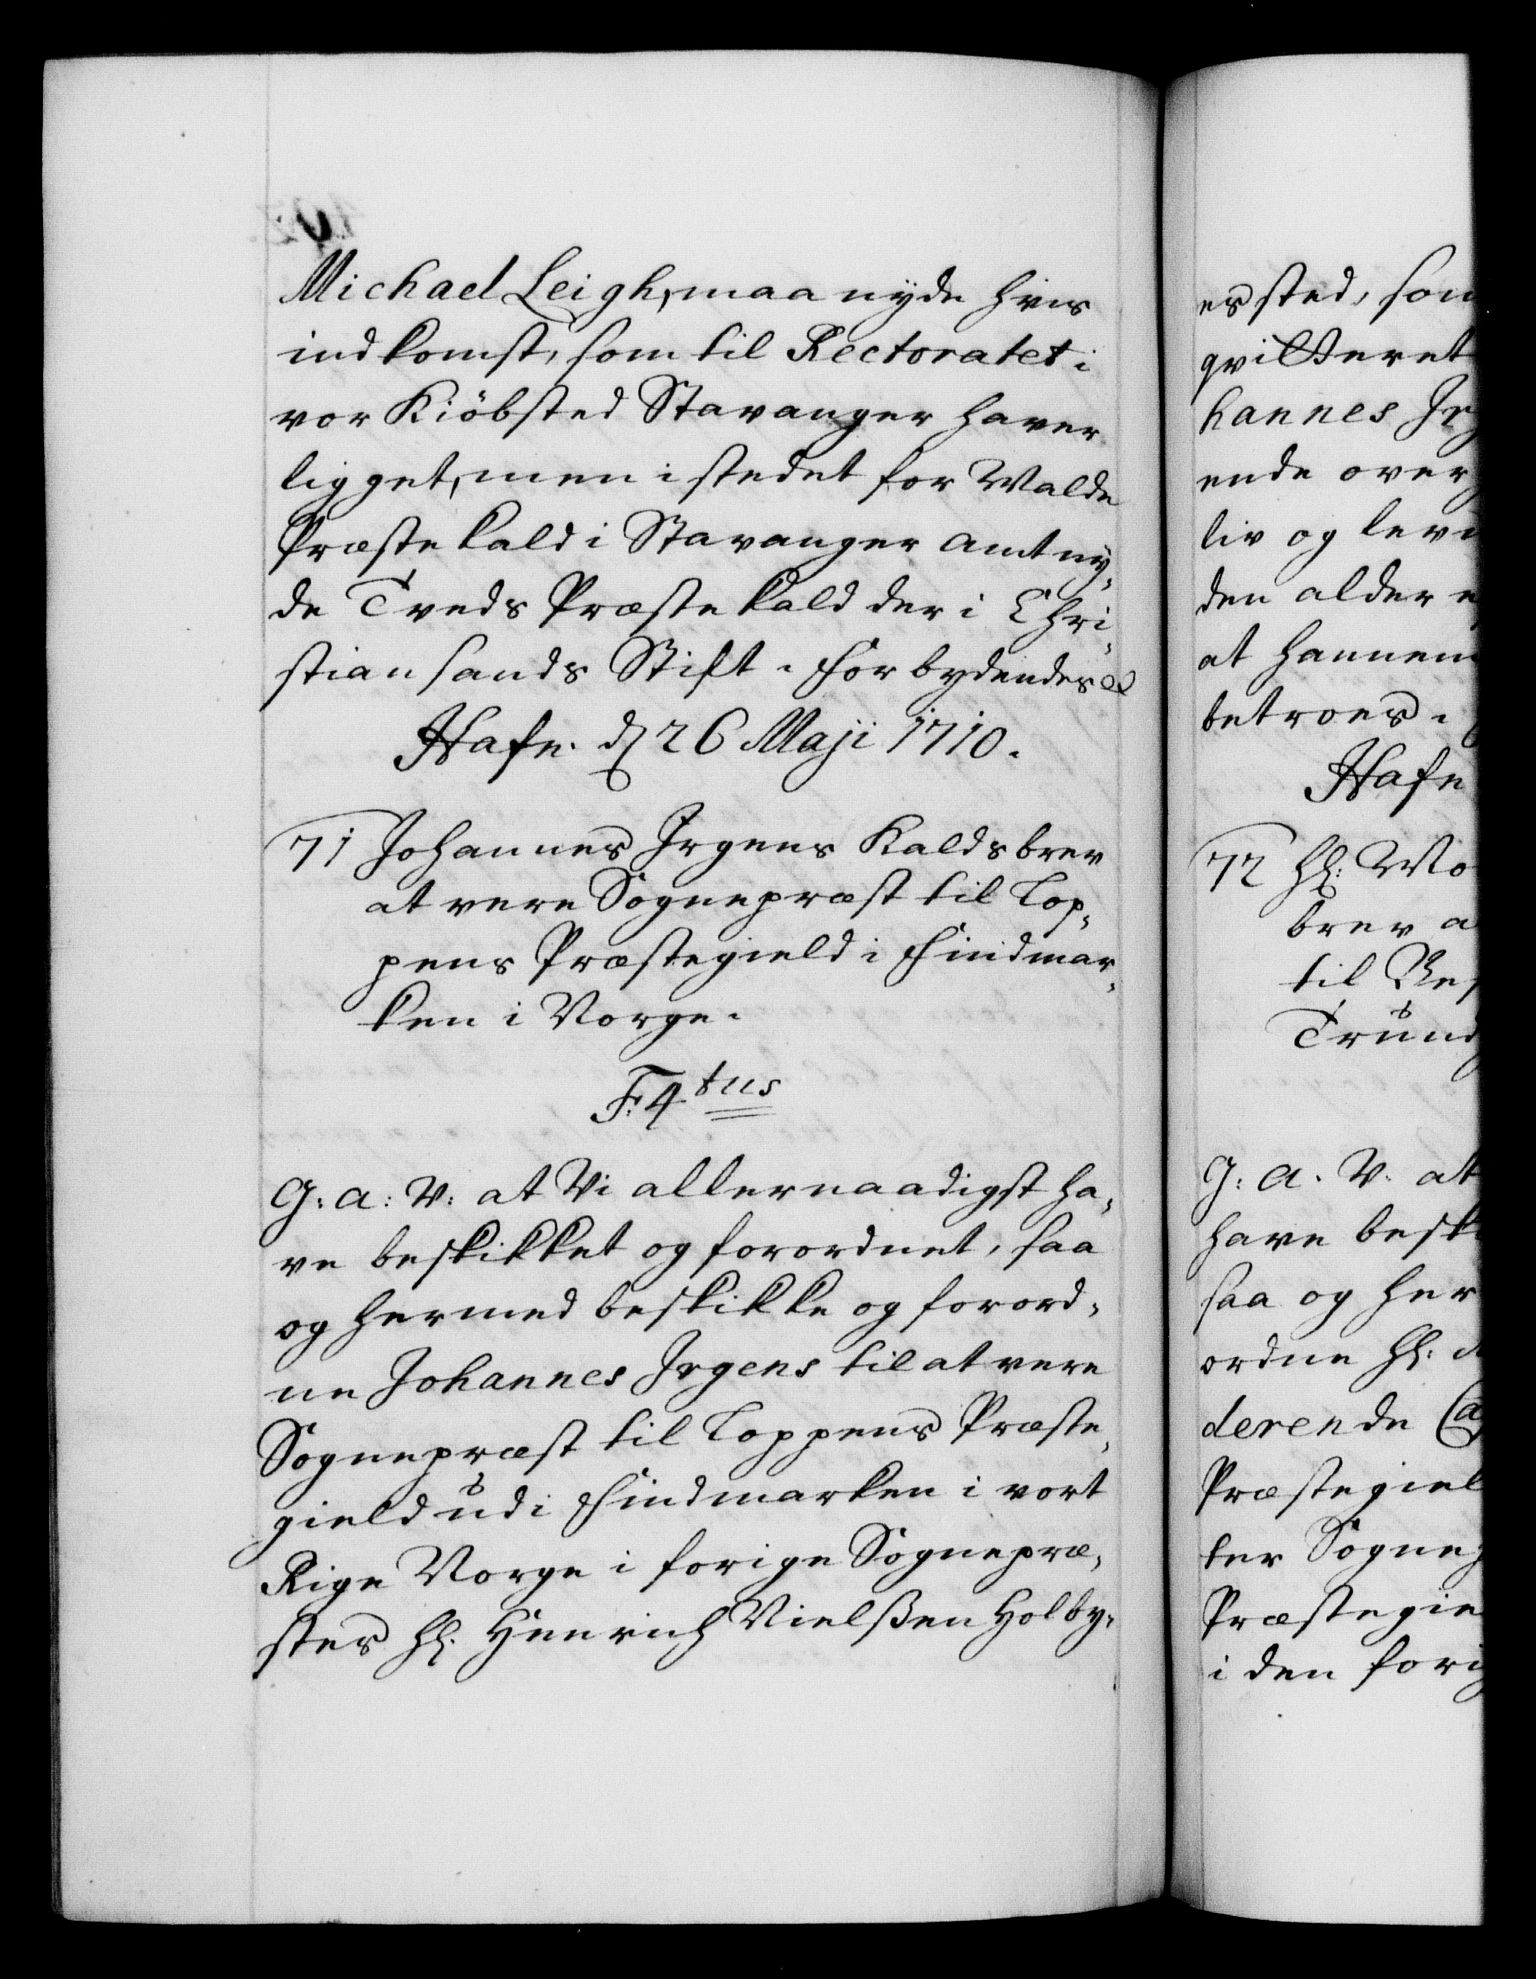 Michael Leigh, maa nyde hvis
indkomst, som til Rectoratet i
vor Kiöbsted Stavanger haver
ligget, men i stedet for Walde
Præstekald i Stavanger amt ny-
de Tveds Præstekald der i Chri-
stiansands Stift. Forbydendes &
Hafn. d 26 Maji 1710.
71 Johannes Irgens Kaldsbrev
at vere Sognepræst til Lop-
pens Præstegield i Findmar-
ken i Norge.
F: 4tus
G: a: V: at Vi allernaadigst ha-
ve beskikket og forordnet, saa
og hermed beskikke og forord-
ne Johannes Irgens til at vere
Sognepræst til Loppens Præste-
gield udi Findmarken i vort
Rige Norge i forige Sognepræ-
stes Hr. Henrich Nielßen Holby-
es sted, som
qvitteret
hannes Ir
ende over
liv og lev
den alder
at hannem
betroes.
Hafn
72 Hr: Mo
brev a
til
Trund
G: a. V. at
have besk
saa og her
ordne Hr.
derende Ca
Præstegiel
ter Sogne
Præstegie
i den fori